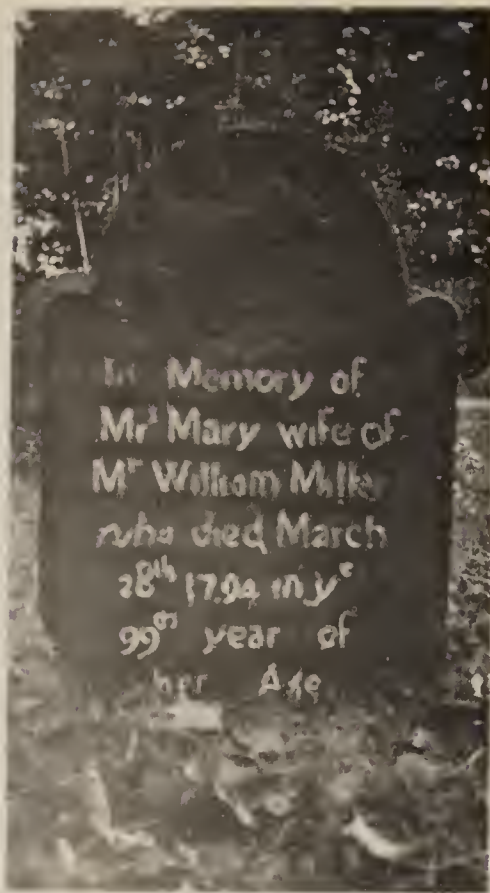 In Memory of
Mrs Mary wife of
Mr William Miller
who died March
28th 1794 in ye
99th year of
her Age